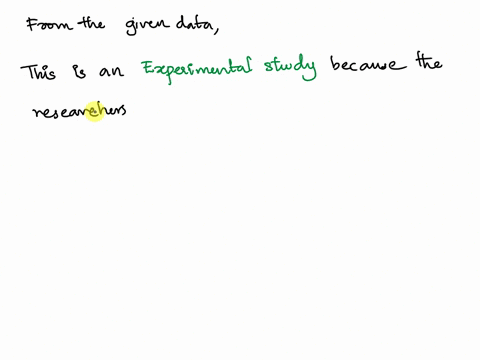 From the given data,
This is an Experimental study because the
researchers